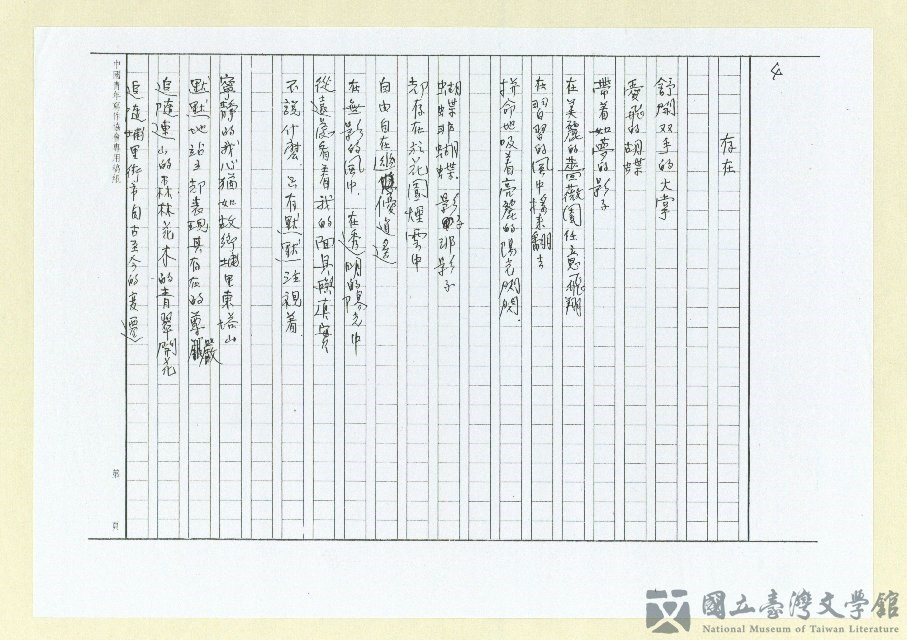 4
存在
舒開双手的大掌
愛飛的胡蝶
帶着如夢的影子
在美麗的薔薇園任意飛翔
在習習的風中樣來翻去
拼命地吸着亮麗的陽光閃閃
蝴蝶非蝴蝶 影子非影子
却存在於花園煙雲中
自由自在 優 逍遥
在無影的風中 在透明的陽光中
從遠處看着我的面具與真實
不說什麼 只有默默注視着
寧静的我心猶如故鄉埔里東塔山
默默地站立却表現其存在的尊嚴
追隨連山的森林花木的青翠開花
追隨埔里街市自古至今的變遷
中國青年寫作協會專用稿紙
第 頁
國立臺灣文學館
National Museum of Taiwan Literature